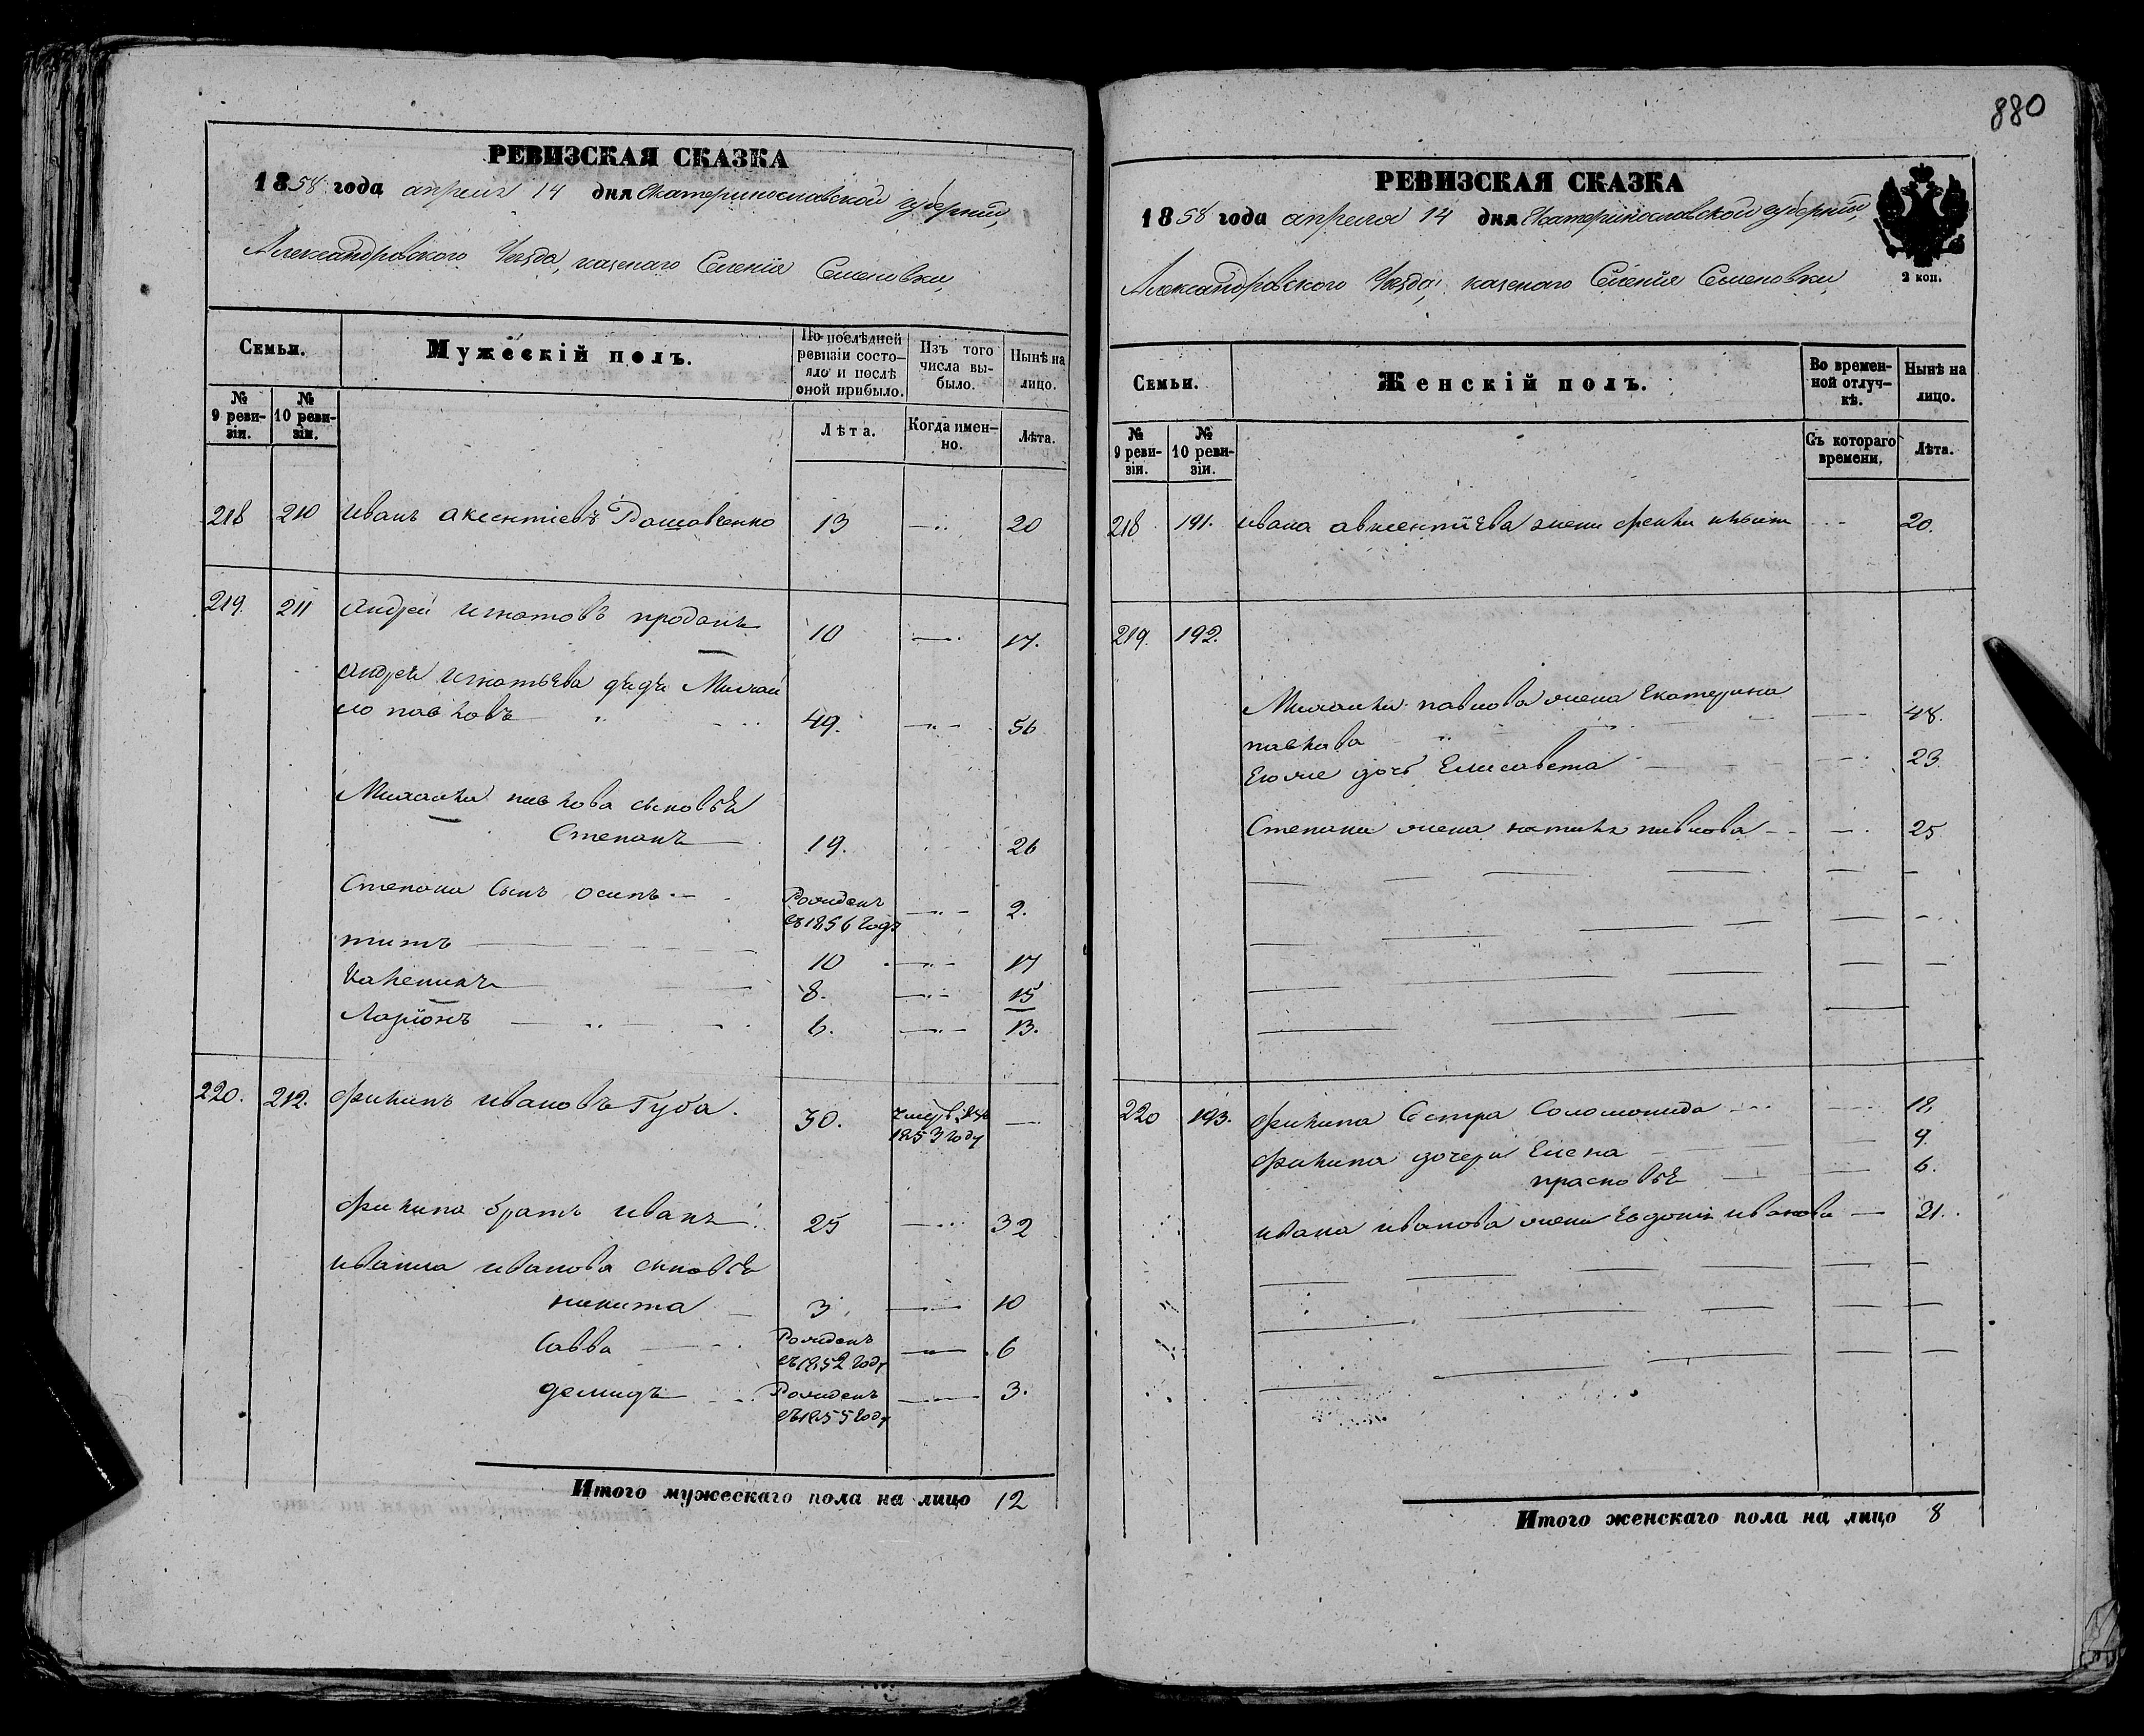 880
РЕВИЗСКАЯ СКАЗКА
1858 года апреля 14 дня Екатеринославской губернии,
Александровского Уѣзда, казенаго Селенія Семеновки,
Семьи.
Мужескій полъ.
По послѣдней ревизіи состояло и послѣ оной прибыло.
Изъ того числа выбыло.
Нынѣ на лицо.
№ 9 ревизіи.
№ 10 ревизіи.
Лѣта.
Когда именно.
Лѣта.
218 210 Иванъ аксентіевъ 13 20
219. 211 Андрей игнатовъ проданъ 10 17.
Андрея игнатьева дядя Михай
ло павловъ 49. 56
Михайлы павлова сыновья
Степанъ 19. 26
Степана Сынъ осипъ Рожденъ въ 1856 годе 2.
титъ 10 17
8. 15
Ларіонъ 6. 13.
220. 212. Филипъ ивановъ Губа. 30. 1853 году
Филипа братъ иванъ 25 32
ивана иванова сыновья
никита 3 10
Савва Рожденъ въ 1852 году 6
демидъ Рожденъ въ 1855 году 3.
Итого мужескаго пола на лицо 12
РЕВИЗСКАЯ СКАЗКА
1858 года апреля 14 дня Екатеринославской губерніи,
Александровского Уѣзда, казенаго Селенія Семеновки,
2 коп.
Семьи.
Женскій полъ.
Во временной отлучкѣ.
Нынѣ на лицо.
№ 9 ревизіи.
№ 10 ревизіи.
Съ котораго времени.
Лѣта.
218 191. ивана авксентіева жена 20.
219. 192.
Михайлы павлова жена Екатерина
павлова 48.
Его же дочь Елисавета 23
Степана жена павлова 25
220 193. Филипа Сестра Соломонида 18,
Филипа дочери Елена 9.
прасковья 6.
ивана иванова жена Евдокия иванова 31.
Итого женскаго пола на лицо 8